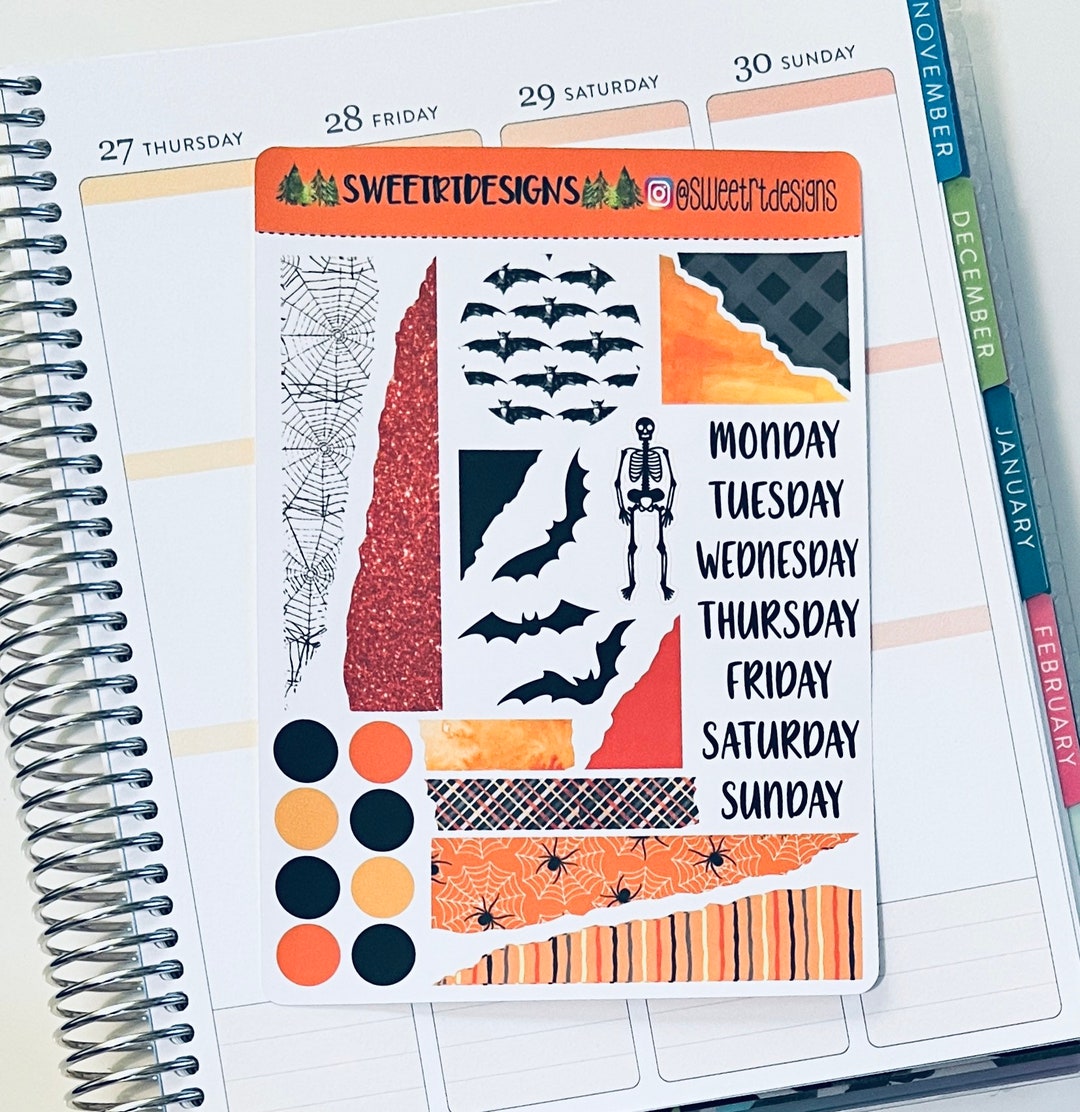 27 THURSDAY
28 FRIDAY
29 SATURDAY
30 SUNDAY
SWEETRTDESIGNS @sweetrtdesigns
MONDAY
TUESDAY
WEDNESDAY
THURSDAY
FRIDAY
SATURDAY
SUNDAY
NOVEMBER
DECEMBER
JANUARY
FEBRUARY